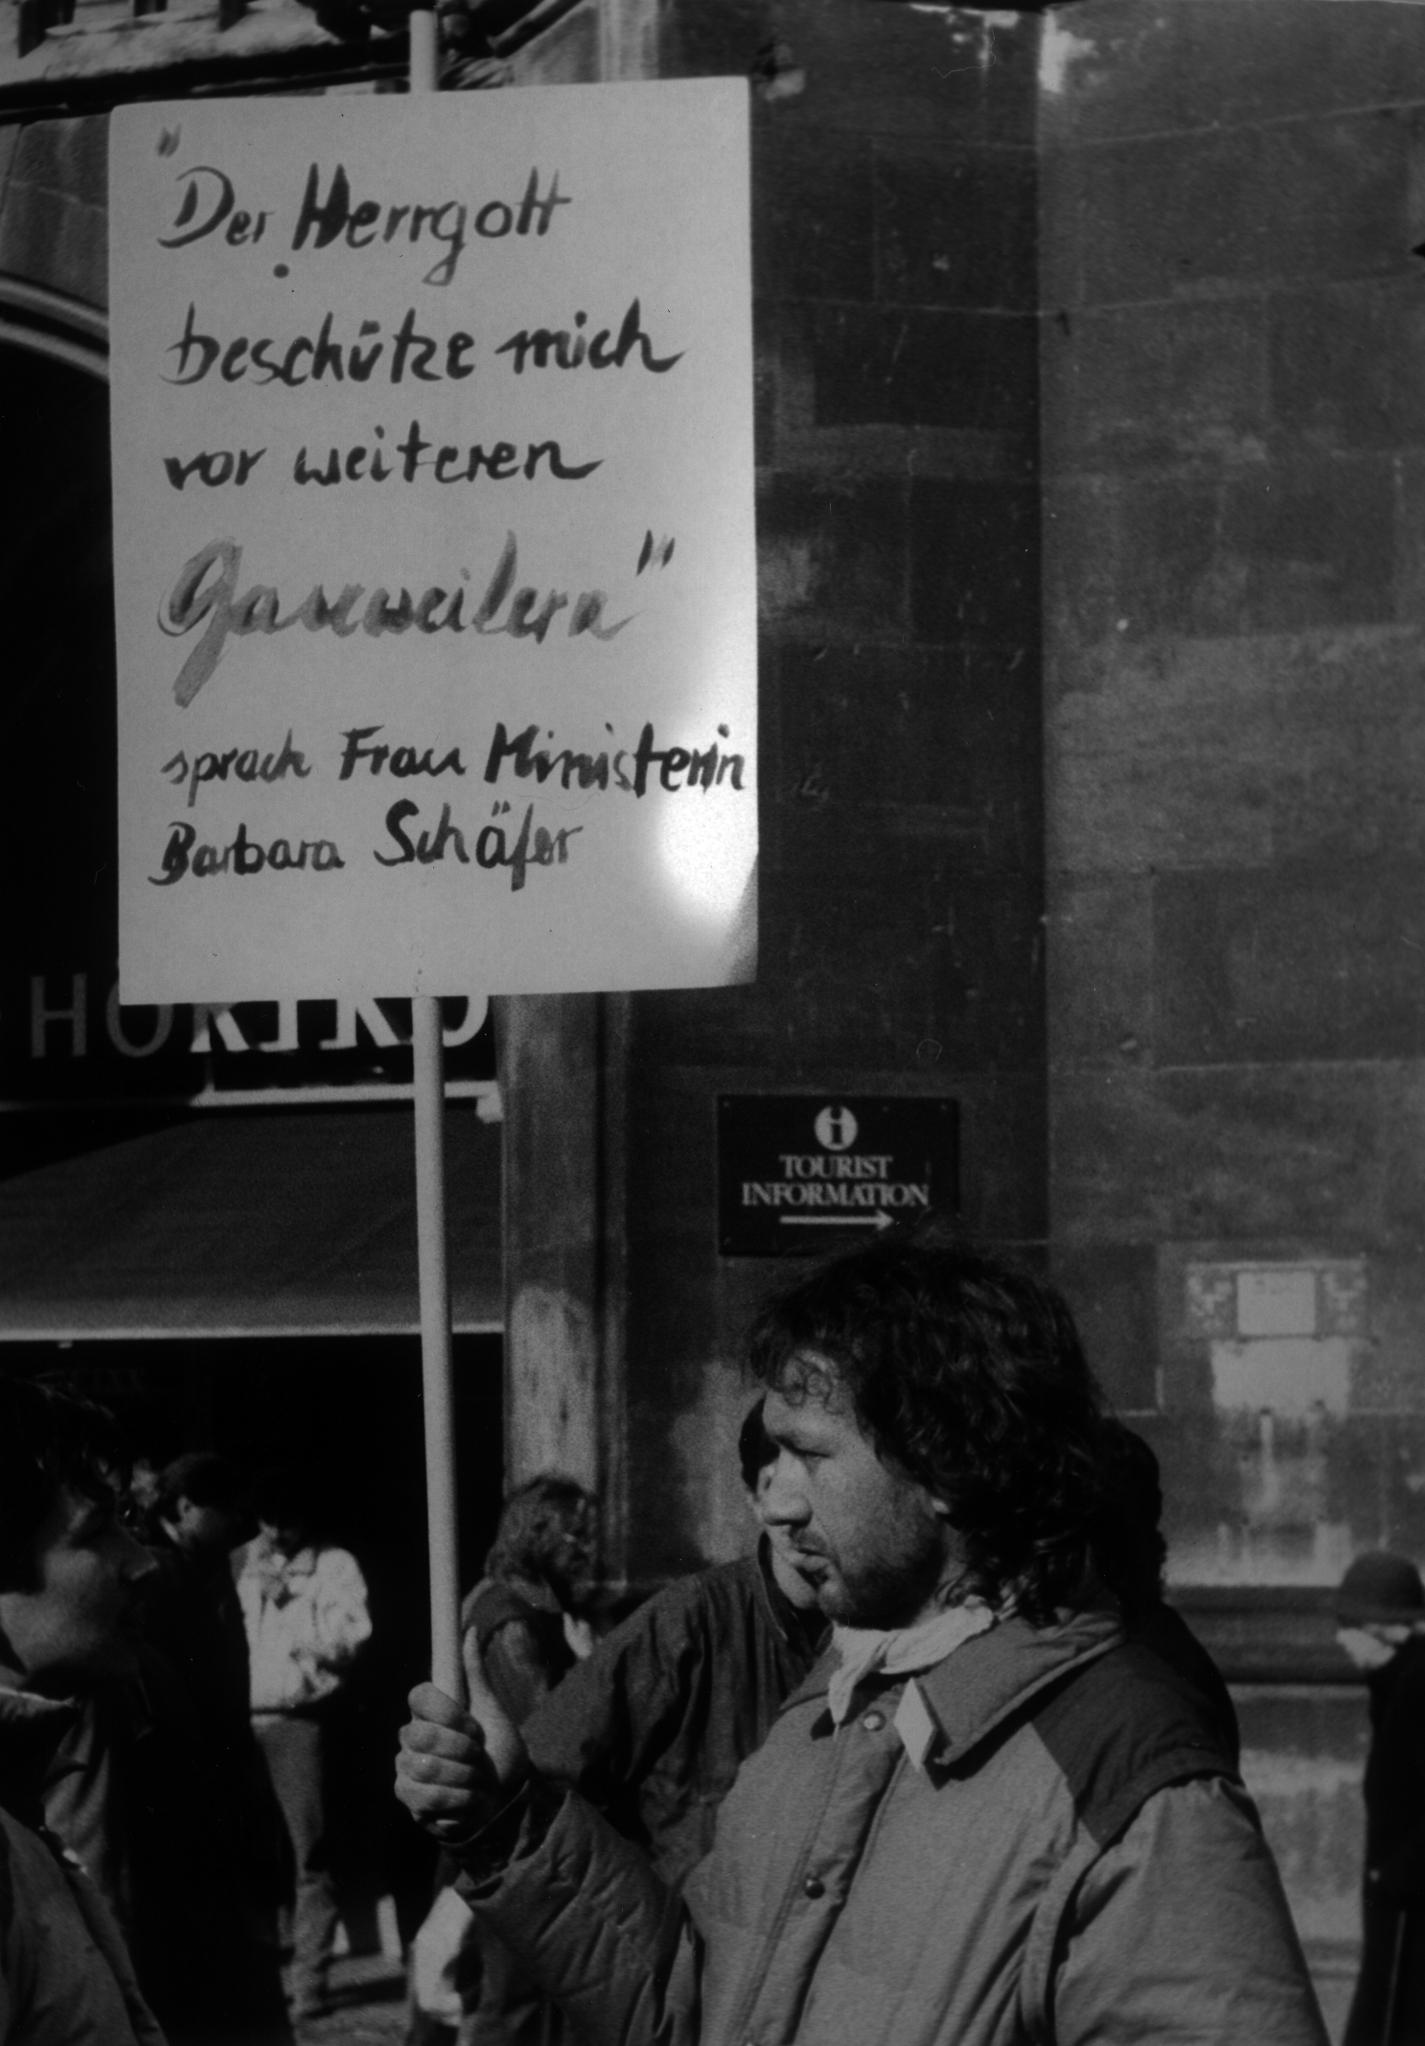 "Der Herrgott
beschütze mich
vor weiteren
Gauweilern"
sprach Frau Ministerin
Barbara Schäfer
i
TOURIST
INFORMATION